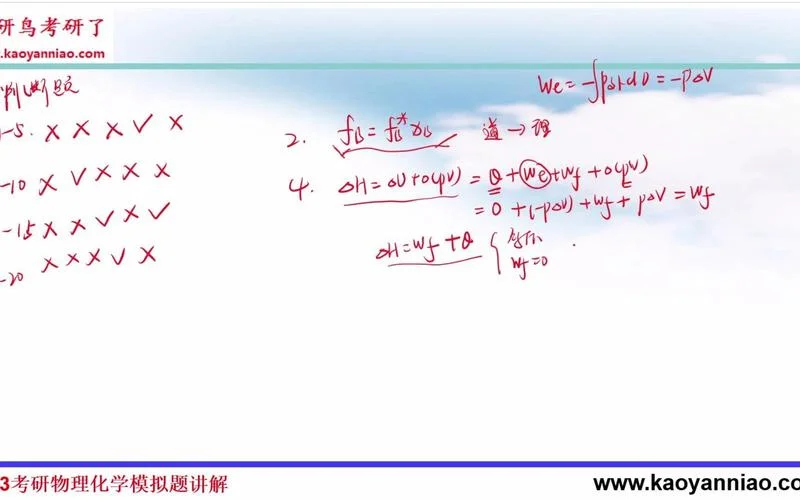 研鸟考研了
.kaoyanniao.com
判断题
-5. × × × ✓ ×
-10 × ✓ × × ×
-15 × × ✓ × ✓
-20 × × × ✓ ×
We = -∫p外dV = -pΔV
2. fB = fB* xB 道 → 理
4. ΔH = ΔU + Δ(pV) = Q + We + Wf + Δ(pV)
= 0 + (-pΔV) + Wf + pΔV = Wf
ΔH = Wf + Q { 等压
Wf = 0
3考研物理化学模拟题讲解
www.kaoyanniao.com